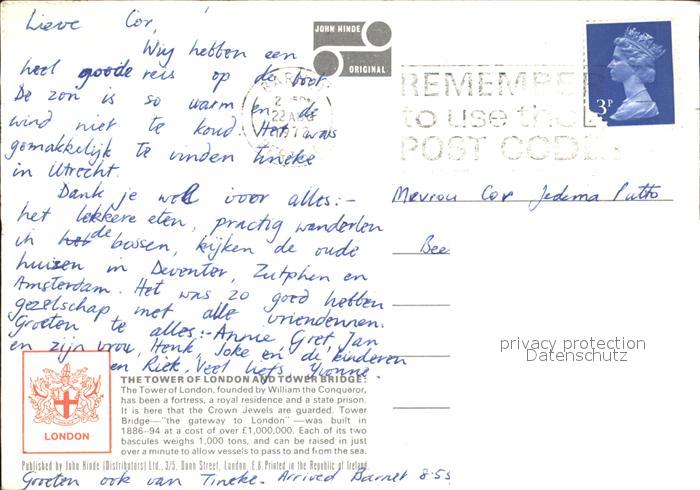 Lieve Cor,
Wij hebben een
heel goode reis op de boot.
De zon is so warm en de
wind niet te koud. Het was
gemakkelijk te vinden Tineke
in Utrecht.
Dank je wel voor alles:-
het lekkere eten, practig wanderlen
in de bossen, kijken de oude
huizen in Deventer, Zutphen en
Amsterdam. Het was zo goed hebben
gezelschap met alle vriendennen.
Groeten te alles:- Annie, Gret, Jan
en zijn vrou, Henk, Joke en de kinderen
en Riek. Veel liefs, Yvonne.
JOHN HINDE
ORIGINAL
BARNET
22 AUG
REMEMBER
to use the
POST CODE
3P
Mevrou Cor Jedema Putto
Bee
privacy protection
Datenschutz
LONDON
THE TOWER OF LONDON AND TOWER BRIDGE:
The Tower of London, founded by William the Conqueror,
has been a fortress, a royal residence and a state prison.
It is here that the Crown Jewels are guarded. Tower
Bridge—"the gateway to London"—was built in
1886-94 at a cost of over £1,000,000. Each of its two
bascules weighs 1,000 tons, and can be raised in just
over a minute to allow vessels to pass to and from the sea.
Published by John Hinde (Distributors) Ltd., 3/5, Dunn Street, London, E.8. Printed in the Republic of Ireland.
Groeten ook van Tineke. Arrived Barnet 8:55